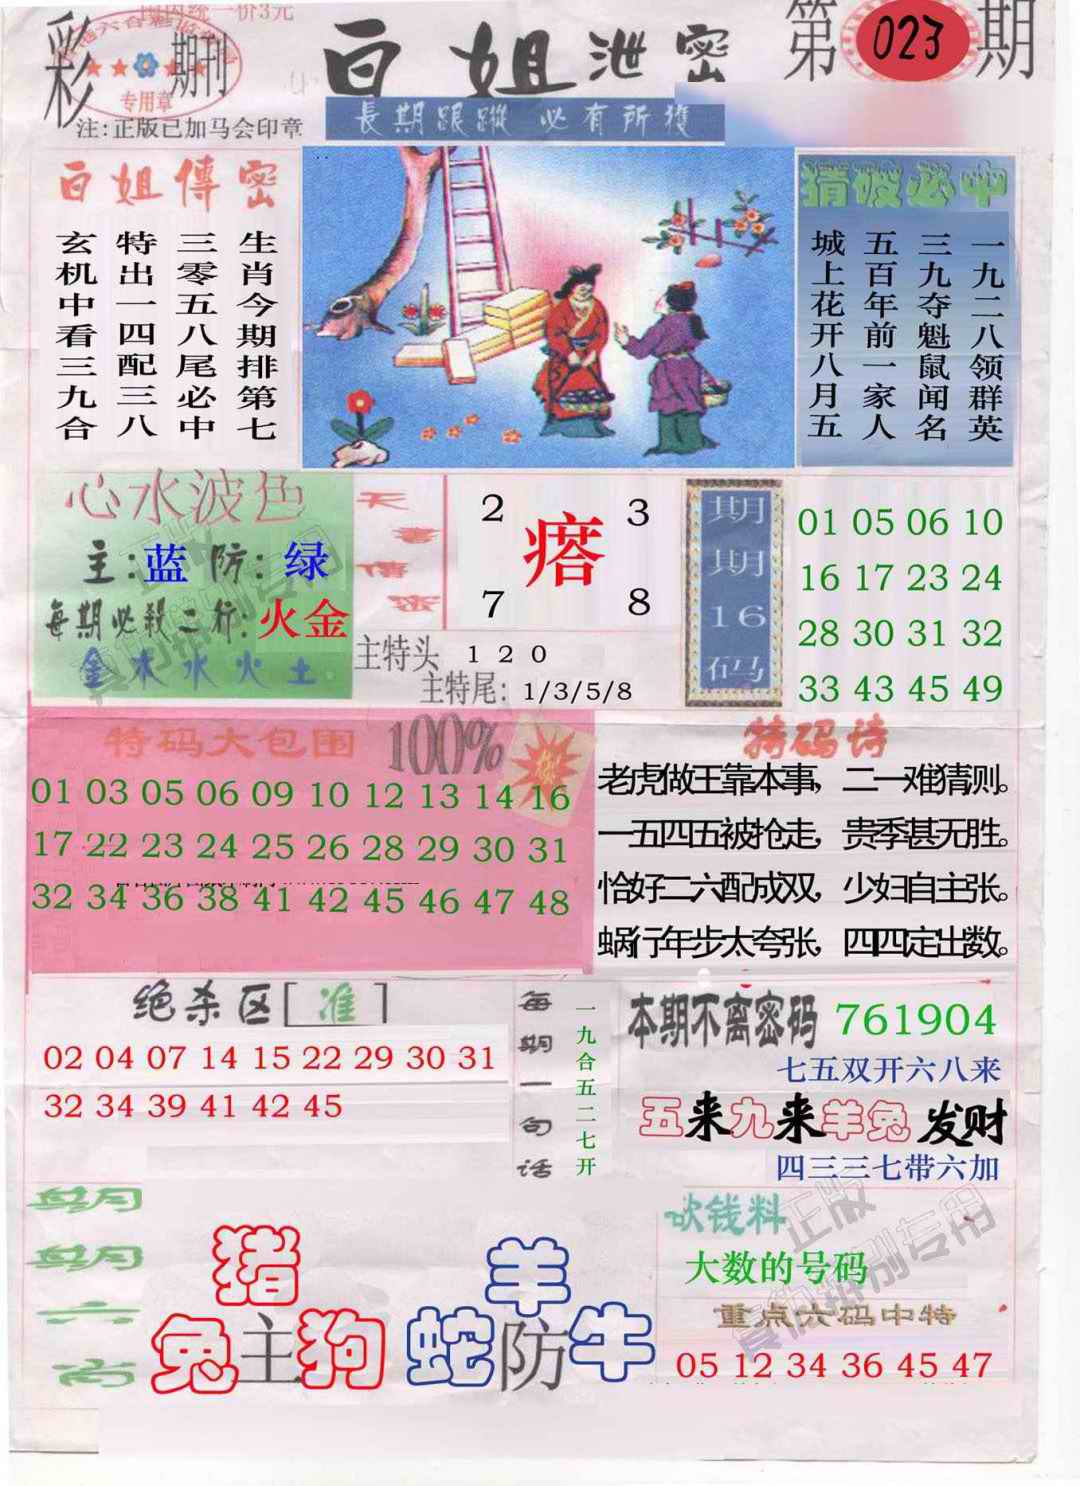 国内统一价3元
彩 期刊
专用章
注:正版已加马会印章
白姐泄密
第 023 期
長期跟蹤 必有所獲
白姐傳密
生肖今期排第七
三零五八尾必中
特出一四配三八
玄机中看三九合
猜破必中
一九二八领群英
三九夺魁鼠闻名
五百年前一家人
城上花开八月五
心水波色
主:蓝 防:绿
每期必殺二行:火金
金木水火土
天書傳密
2 3
瘩
7 8
主特头 1 2 0
主特尾: 1/3/5/8
期期16码
01 05 06 10
16 17 23 24
28 30 31 32
33 43 45 49
特码大包围 100%
01 03 05 06 09 10 12 13 14 16
17 22 23 24 25 26 28 29 30 31
32 34 36 38 41 42 45 46 47 48
特码诗
老虎做王靠本事，二一难猜则。
一五四五被抢走，贵季甚无胜。
恰好二六配成双，少妇自主张。
蜗行年步太夸张，四四定出数。
绝杀区[准]
02 04 07 14 15 22 29 30 31
32 34 39 41 42 45
每期一句话
一九合五二七开
本期不离密码 761904
七五双开六八来
五来九来羊兔 发财
四三三七带六加
期期六肖
猪
兔主狗
羊
蛇防牛
砍钱料
大数的号码
重点六码中特
05 12 34 36 45 47